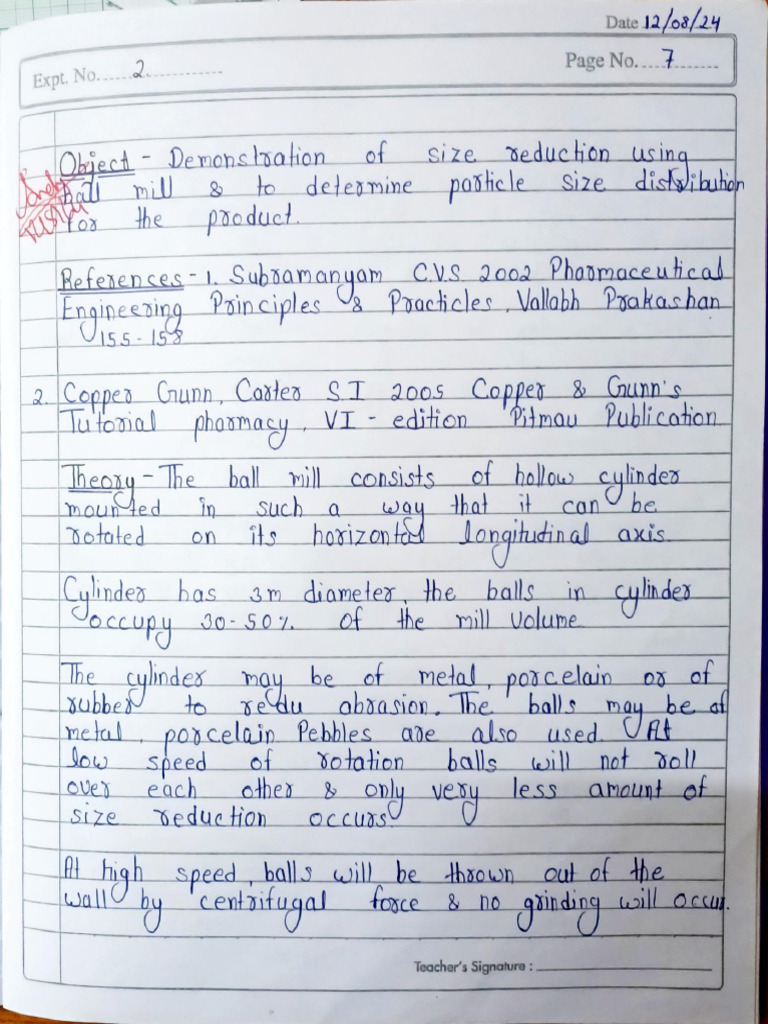 Date 12/08/24
Expt. No. 2.
Page No. 7
Object - Demonstration of size reduction using
ball mill & to determine particle size distribution
for the product.
References - 1. Subramanyam C.V.S 2002 Pharmaceutical
Engineering Principles & Practicles, Vallabh Prakashan
155-158
2. Copper Gunn, Carter S I 2005 Copper & Gunn's
Tutorial pharmacy, VI - edition Pitmau Publication
Theory - The ball mill consists of hollow cylinder
mounted in such a way that it can be
rotated on its horizontal longitudinal axis
Cylinder has 3m diameter, the balls in cylinder
occupy 30-50% of the mill volume
The cylinder may be of metal, porcelain or of
rubber to redu abrasion. The balls may be of
metal, porcelain Pebbles are also used. At
low speed of rotation balls will not roll
over each other & only very less amount of
size reduction occurs.
At high speed, balls will be thrown out of the
wall by centrifugal force & no grinding will occur.
Teacher's Signature :